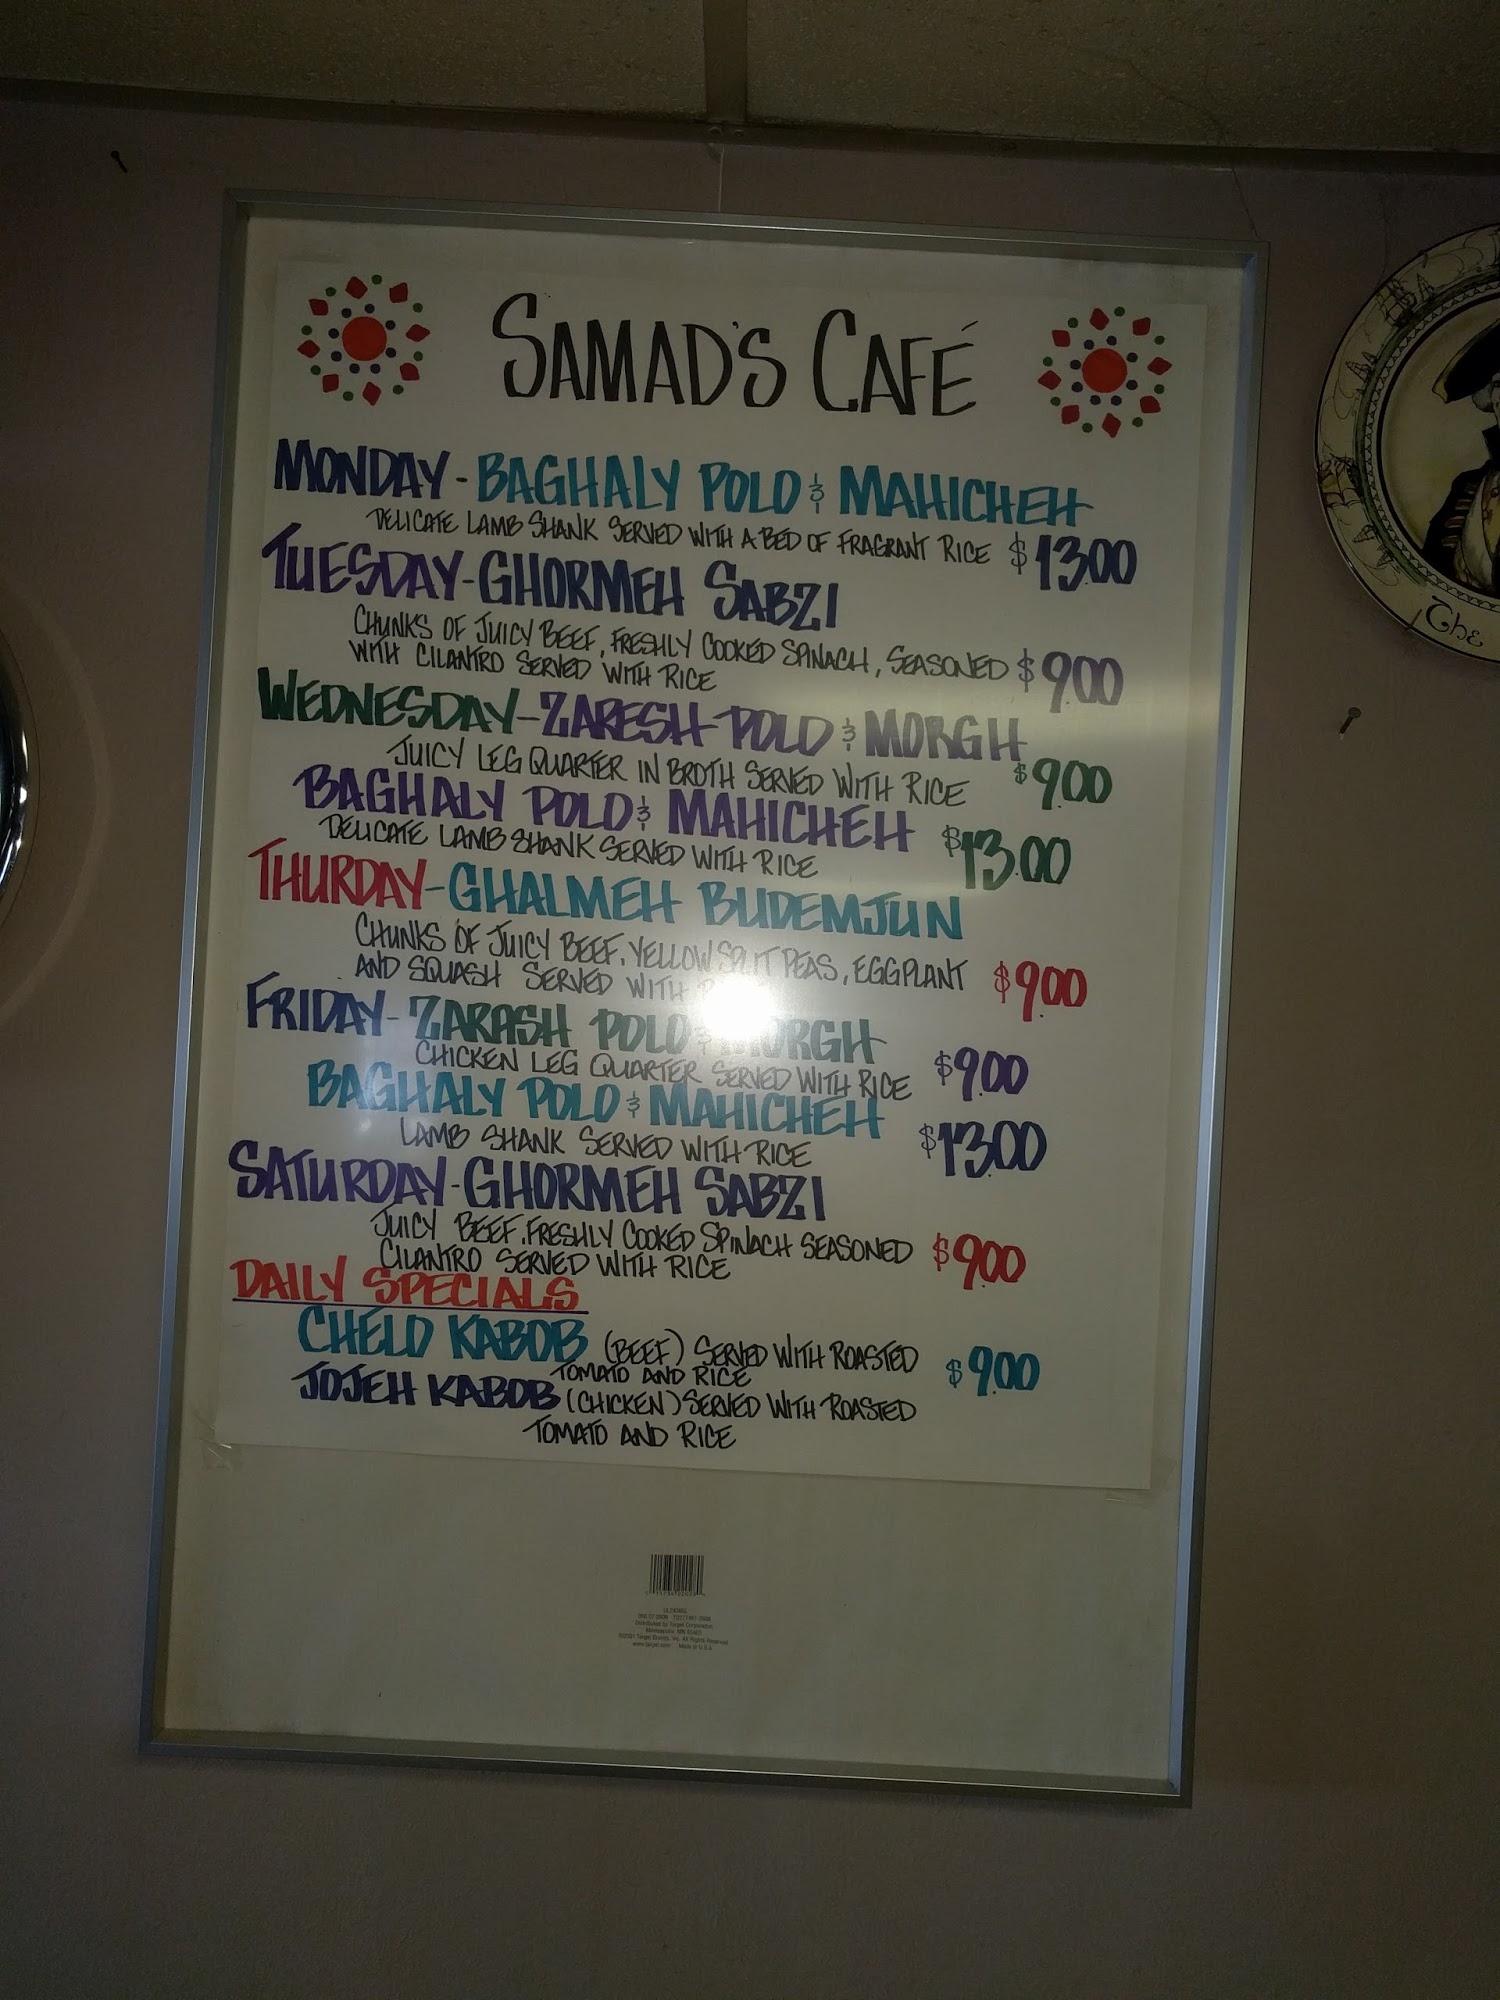 SAMAD'S CAFÉ
MONDAY - BAGHALY POLO & MAHICHEH
DELICATE LAMB SHANK SERVED WITH A BED OF FRAGRANT RICE $13.00
TUESDAY - GHORMEH SABZI
CHUNKS OF JUICY BEEF, FRESHLY COOKED SPINACH, SEASONED $9.00
WITH CILANTRO SERVED WITH RICE
WEDNESDAY - ZARESH POLO & MORGH
JUICY LEG QUARTER IN BROTH SERVED WITH RICE $9.00
BAGHALY POLO & MAHICHEH
DELICATE LAMB SHANK SERVED WITH RICE $13.00
THURDAY - GHALMEH BUDEMJUN
CHUNKS OF JUICY BEEF, YELLOW SPLIT PEAS, EGGPLANT $9.00
AND SQUASH SERVED WITH
FRIDAY - ZARASH POLO & MORGH
CHICKEN LEG QUARTER SERVED WITH RICE $9.00
BAGHALY POLO & MAHICHEH
LAMB SHANK SERVED WITH RICE $13.00
SATURDAY - GHORMEH SABZI
JUICY BEEF, FRESHLY COOKED SPINACH SEASONED $9.00
CILANTRO SERVED WITH RICE
DAILY SPECIALS
CHELO KABOB (BEEF) SERVED WITH ROASTED $9.00
TOMATO AND RICE
JOJEH KABOB (CHICKEN) SERVED WITH ROASTED
TOMATO AND RICE
Distributed by Target Corporation
The